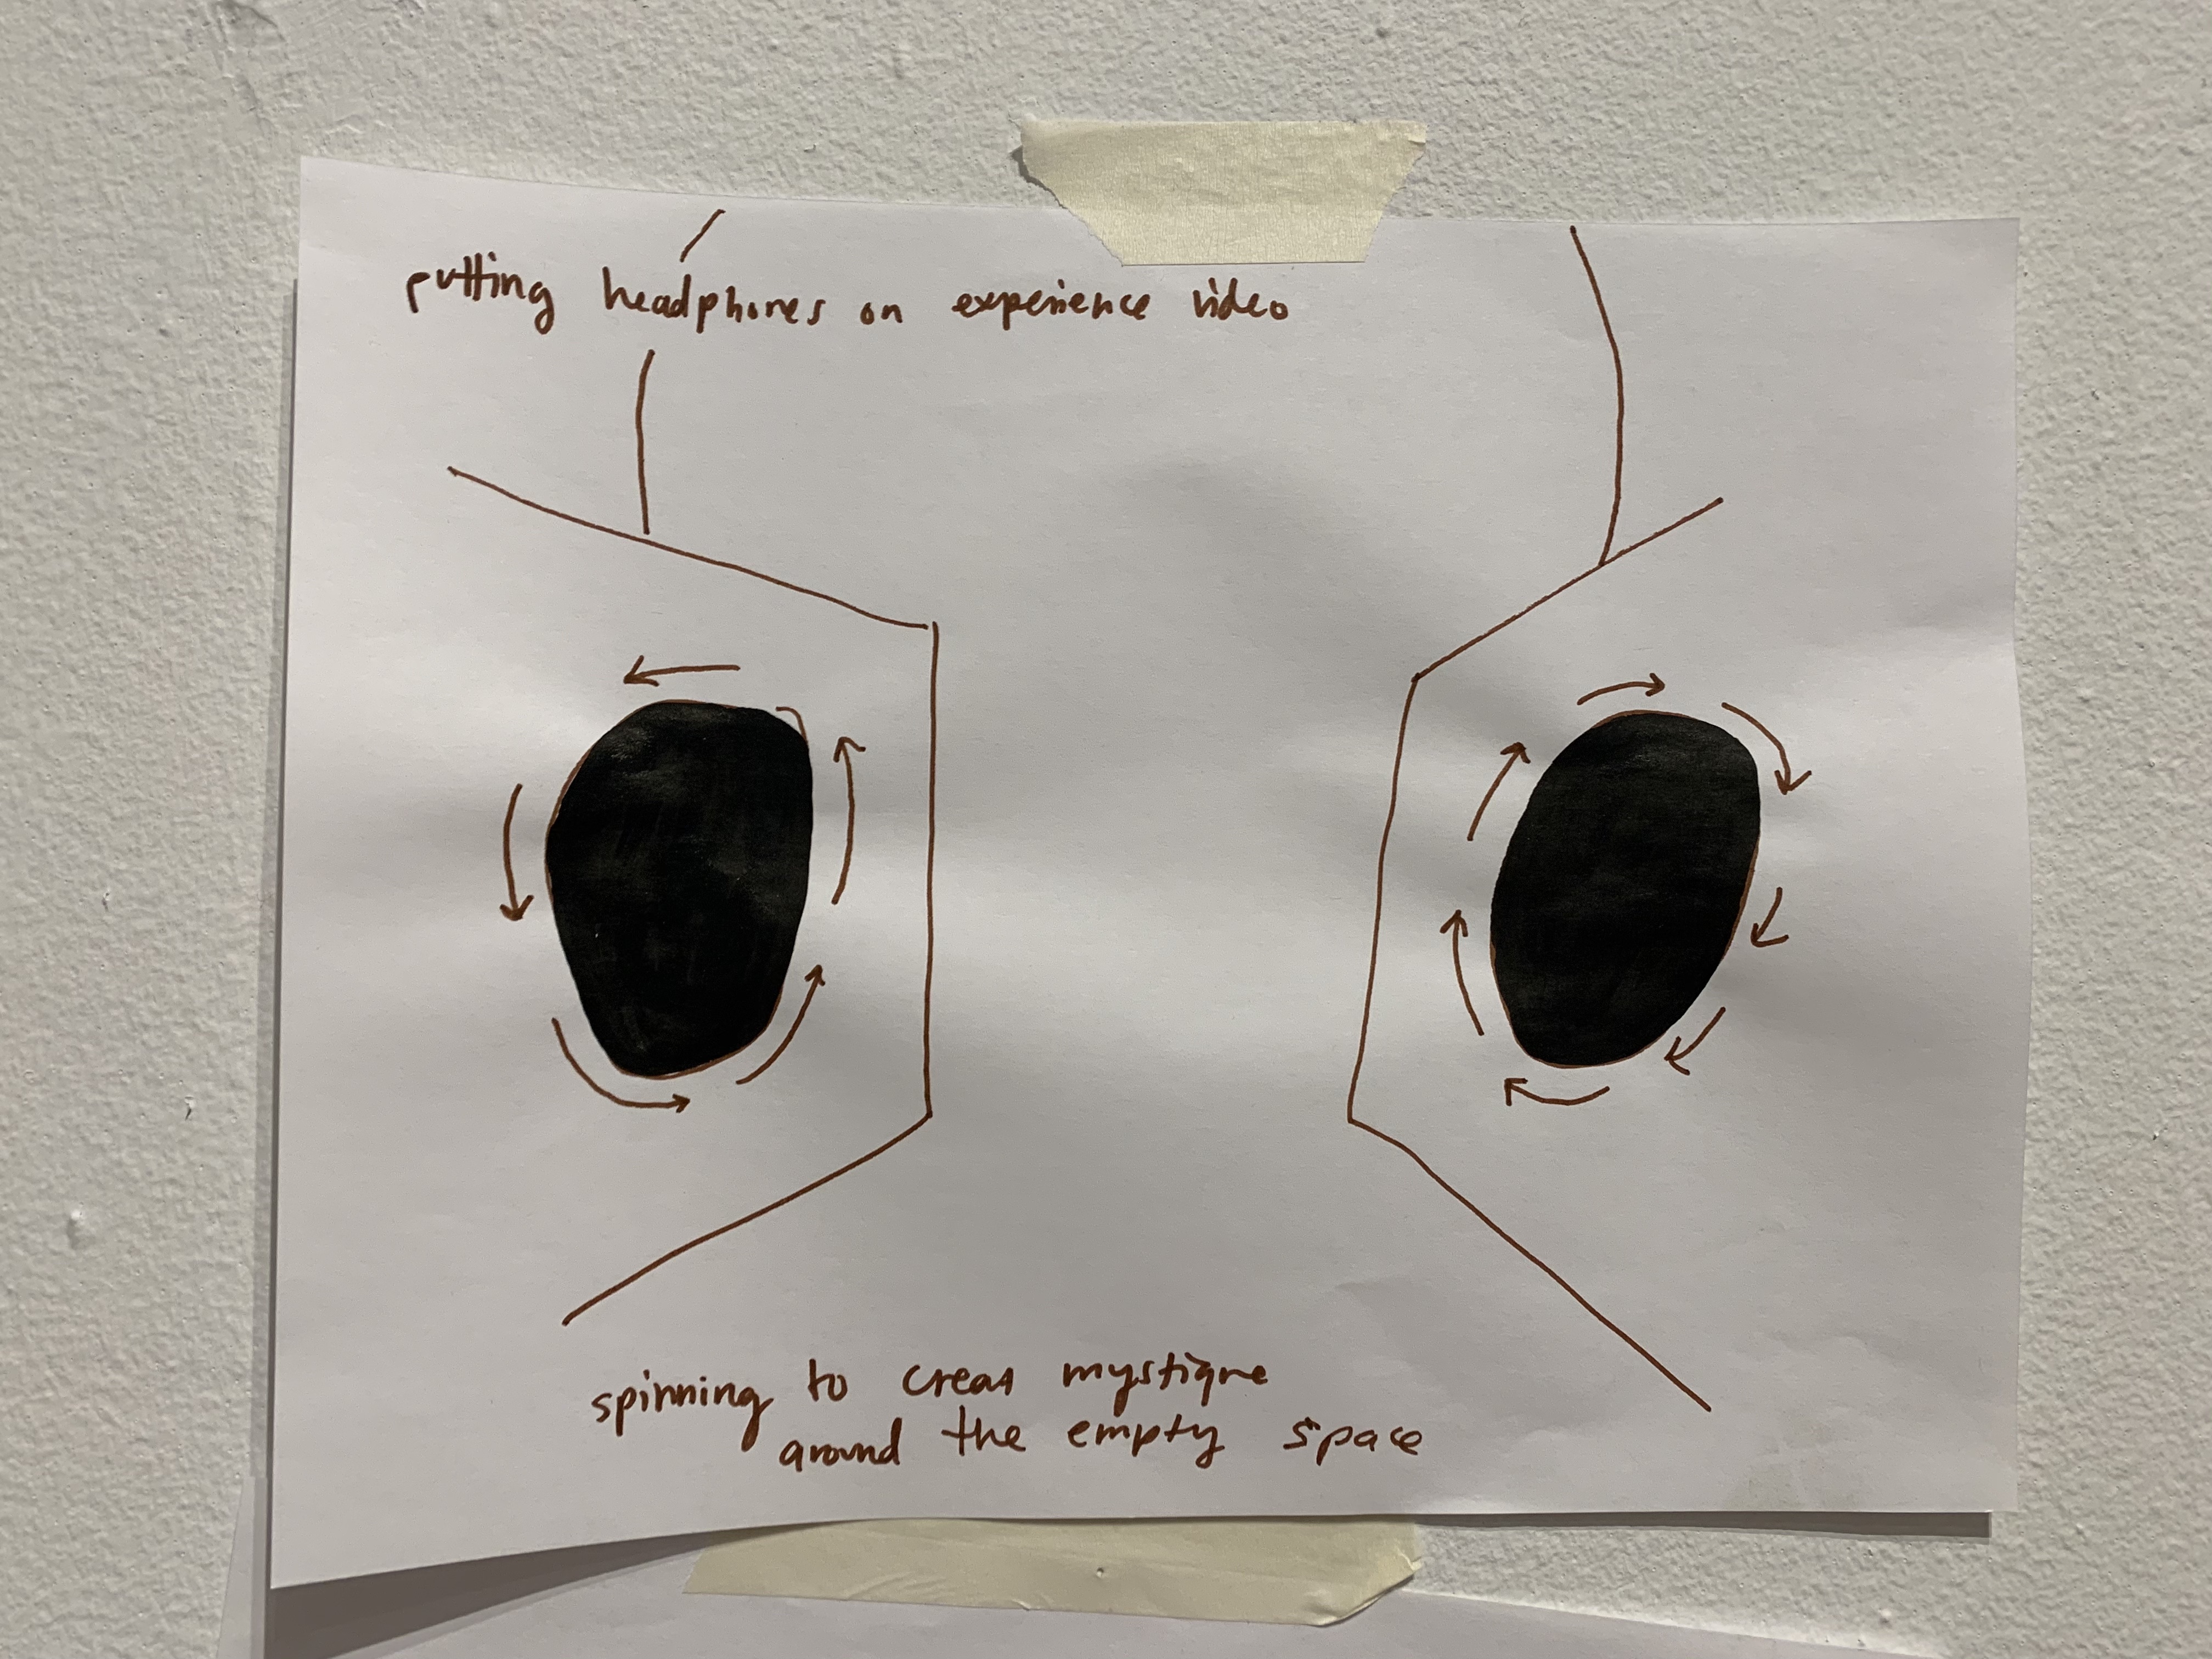 putting headphones on experience video
spinning to creat mystique
around the empty space